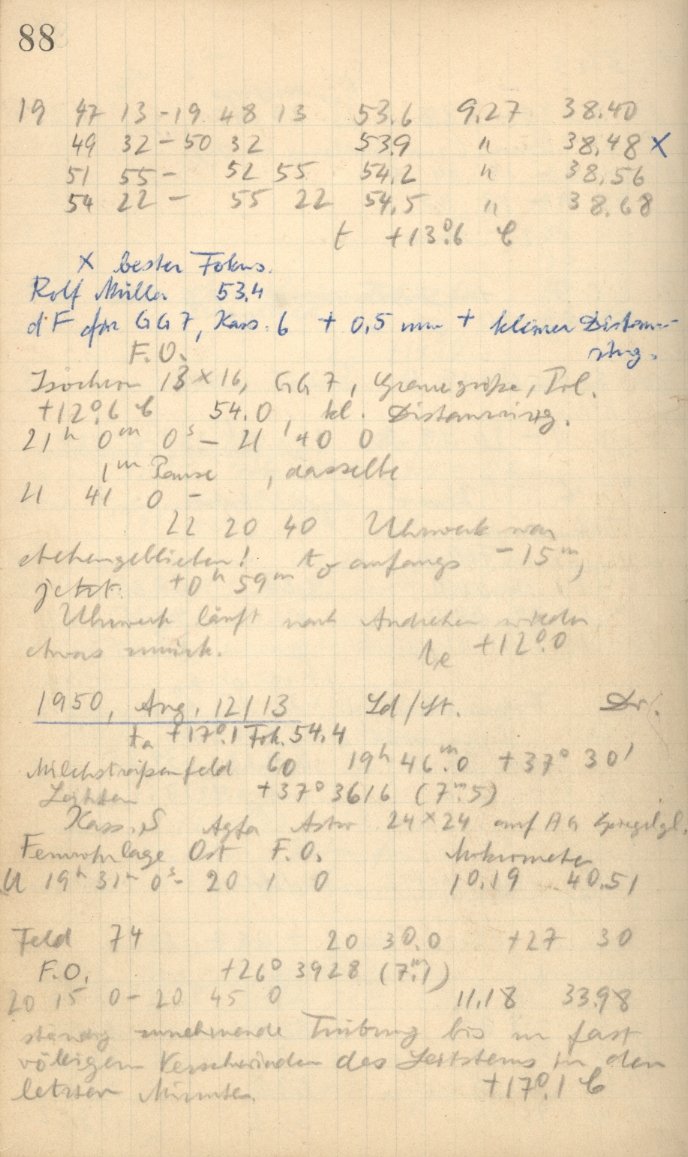 88
19 47 13 - 19 48 13 53.6 9.27 38.40
49 32 - 50 32 53.9 " 38,48 x
51 55 - 52 55 54,2 " 38,56
54 22 - 55 22 54,5 " 38.68
t +13°.6 C
x bester Fokus.
Rolf Müller 53,4
dF für GG7, Kass. 6 + 0,5 mm + kleiner Distanz-
ring.
F.O.
Isochrom 13 x 16, GG7, Pol.
+12°.6 C 54.0, kl. Distanzring.
21ʰ 0ᵐ 0ˢ - 21 40 0
1ᵐ Pause, dasselbe
21 41 0 -
22 20 40 Uhrwerk war
stehengeblieben! anfangs -15ᵐ,
jetzt +0ʰ 59ᵐ
Uhrwerk läuft nach Andrehen wieder
etwas zurück. te +12°.0
1950, Aug. 12/13 Ld/St. Dr.
ta +17°.1 Fok. 54.4
Milchstraßenfeld 60 19ʰ 46ᵐ.0 +37° 30'
Leitstern +37° 3616 (7ᵐ.5)
Kass. Agfa Astro 24 x 24 auf AG Spiegelgl.
Fernrohrlage Ost F.O. Mikrometer
U 19ʰ 31ᵐ 0ˢ - 20 1 0 10.19 40.51
Feld 74 20 30.0 +27 30
F.O. +26° 3928 (7ᵐ.1)
20 15 0 - 20 45 0 11.18 33.98
ständig zunehmende Trübung bis zu fast
völligem Verschwinden des Leitsterns in den
letzten Minuten. +17°.1 C